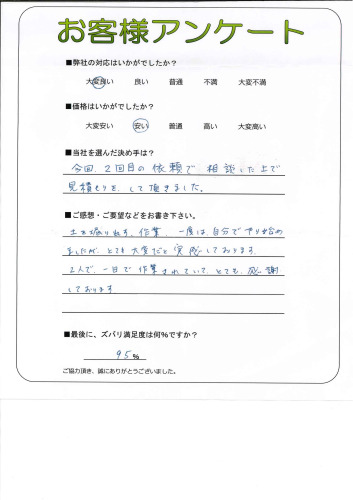 お客様アンケート
■弊社の対応はいかがでしたか?
大変良い 良い 普通 不満 大変不満
■価格はいかがでしたか?
大変安い 安い 普通 高い 大変高い
■当社を選んだ決め手は?
今回、2回目の依頼で相談した上で
見積もりをして頂きました。
■ご感想・ご要望などをお書き下さい。
土を掘り出す、作業、一度は、自分でやり始め
ましたが、とても大変だと実感しております。
2人で、一日で作業されていて、とても、感謝
しております。
■最後に、ズバリ満足度は何%ですか?
95%
ご協力頂き、誠にありがとうございました。